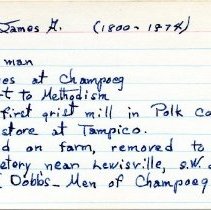 James A. (1800-1874)
man
es at Champoeg
t to Methodism
first grist mill in Polk Co
store at Tampico.
d on farm, removed to
etery near Lewisville, S.W. o
Dobbs - Men of Champoeg